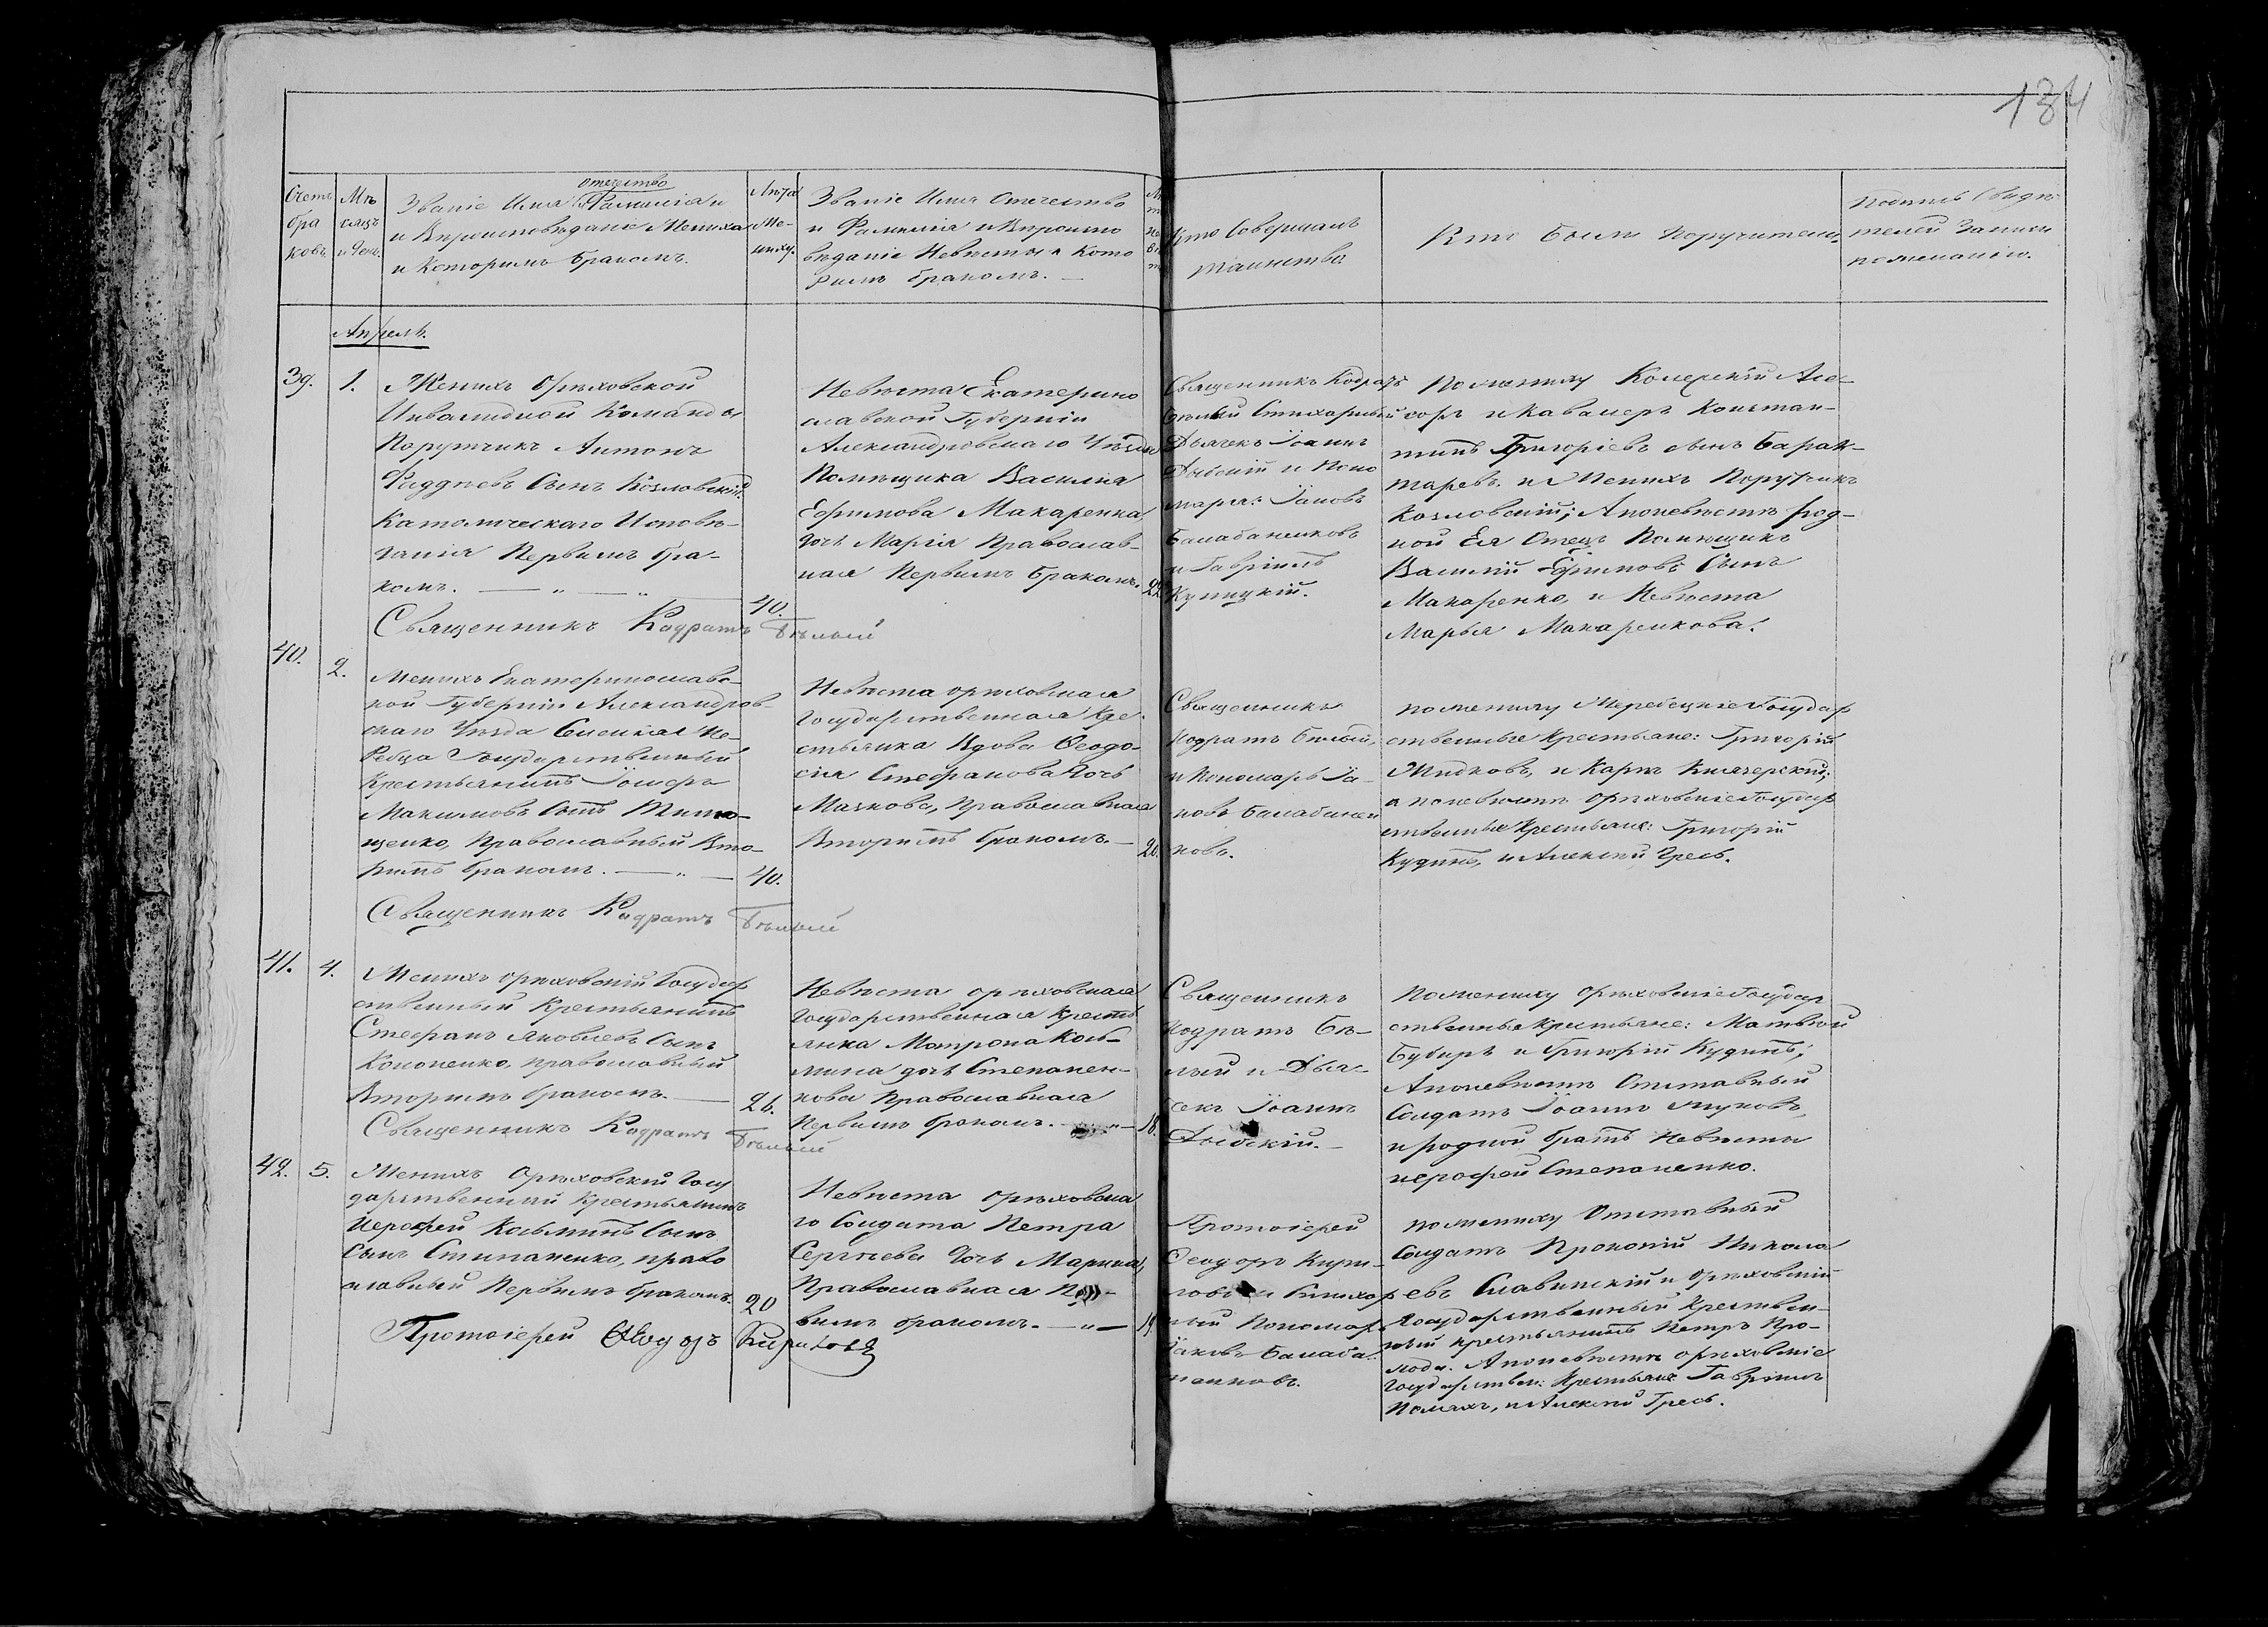 134
Счетъ
бра
ковъ
Мѣ
сяцъ
и день.
отечество
Званіе Имя Фамилія и
и Вѣроисповѣданіе Жениха
и Которимъ бракомъ.
Лѣта
Же-
ниху.
Званіе Имя Отечество
и Фамилія и Вѣроиспо
вѣданіе Невѣсты и Кото
римъ бракомъ.
Кто Совершалъ
таинство
Кто былъ поручители.
Подпись Свидѣ
телей Записи
по желанію.
Апрелѣ.
39.
1.
Женихъ Орѣховской
Инвалидной Команды
Порутчикъ Антонъ
Фаддѣевъ Сынъ Козловскій
Католическаго Исповѣ-
данія Первымъ бра-
комъ.
40.
Невѣста Екатерино
славской Губерніи
Александровскаго Уѣзда
Помѣщика Василія
Ефимова Макаренка
дочь Марія Православ-
ная Первымъ бракомъ.
22.
Священникъ Кодратъ
Бѣлый Стихарный
Дьячекъ Іоаннъ
Дыбскій и Поно
марь: Іаковъ
Балабанниковъ
и Гавріилъ
Купицкій.
По жениху Колежскій Асе-
соръ и Кавалеръ Констан-
тинъ Григоріевъ сынъ Барак-
таревъ. и Женихъ Порутчикъ
Козловскій; А по невѣстѣ род-
ной Ея Отецъ Помѣщикъ
Василій Ефимовъ Сынъ
Макаренко, и Невѣста
Марья Макаренкова.
Священникъ Кодратъ Бѣлый
40.
2.
Женихъ Екатеринославс-
кой Губерніи Александров-
скаго Уѣзда Селенія Же-
ребца Государственный
Крестьянинъ
Максимовъ Сынъ Тимо-
щенко, Православный Вто-
римъ бракомъ.
40.
Невѣста орѣховская
Государственная Кре-
стьянка Вдова Феодо-
сія Стефанова дочь
Мазкова, Православная
Вторимъ бракомъ.
20.
Священникъ
Кодратъ Бѣлый,
и Пономарь Іа-
ковъ Балабанни
ковъ.
по жениху Жеребецкіе Государ
ственные Крестьяне: Григорій
Жидковъ, и Карпъ
а по невѣстѣ орѣховскіе Государ
ственные Крестьяне: Григорій
Кудинъ, и Алексѣй Гресь.
Священникъ Кодратъ Бѣлый
41.
4.
Женихъ орѣховскій Государ
ственный Крестьянинъ
Стефанъ Яковлевъ Сынъ
Кононенко, православный
Вторимъ бракомъ.
26.
Невѣста орѣховская
Государственная Кресть
янка Матрона Козь-
мина дочь Степанен-
кова Православная
Первымъ бракомъ.
18.
Священникъ
Кодратъ Бѣ-
лый и Дья-
чекъ Іоаннъ
Дыбскій.
По жениху орѣховскіе Государ
ственные крестьяне: Матвѣй
Бубырь и Григорій Кудинъ;
А по невѣстѣ Отставный
Солдатъ Іоаннъ Жуковъ,
и родной братъ Невѣсты
иерофей Степаненко.
Священникъ Кодратъ Бѣлый
42.
5.
Женихъ Орѣховскій Госу
дарственный Крестьянинъ
Иерофей Козьминъ Сынъ
Сынъ Стипаненко, право
славный Первымъ бракомъ.
20
Невѣста орѣховска
го Солдата Петра
Сергѣева дочь Марина,
Православная Пер-
вымъ бракомъ.
19
Протоіерей
Феодоръ Кири-
ловъ и Стихар
ный Пономарь
Іаковъ Балаба-
нниковъ.
по жениху Отставный
Солдатъ Прокопій Никола
евъ Славинскій и орѣховскій
Государственный Крестьян-
ный крестьянинъ Петръ Про-
А по невѣстѣ орѣховскіе
Государствен: Крестьяне Гавріилъ
и Алексѣй Гресь.
Протоіерей Феодоръ Кириловъ